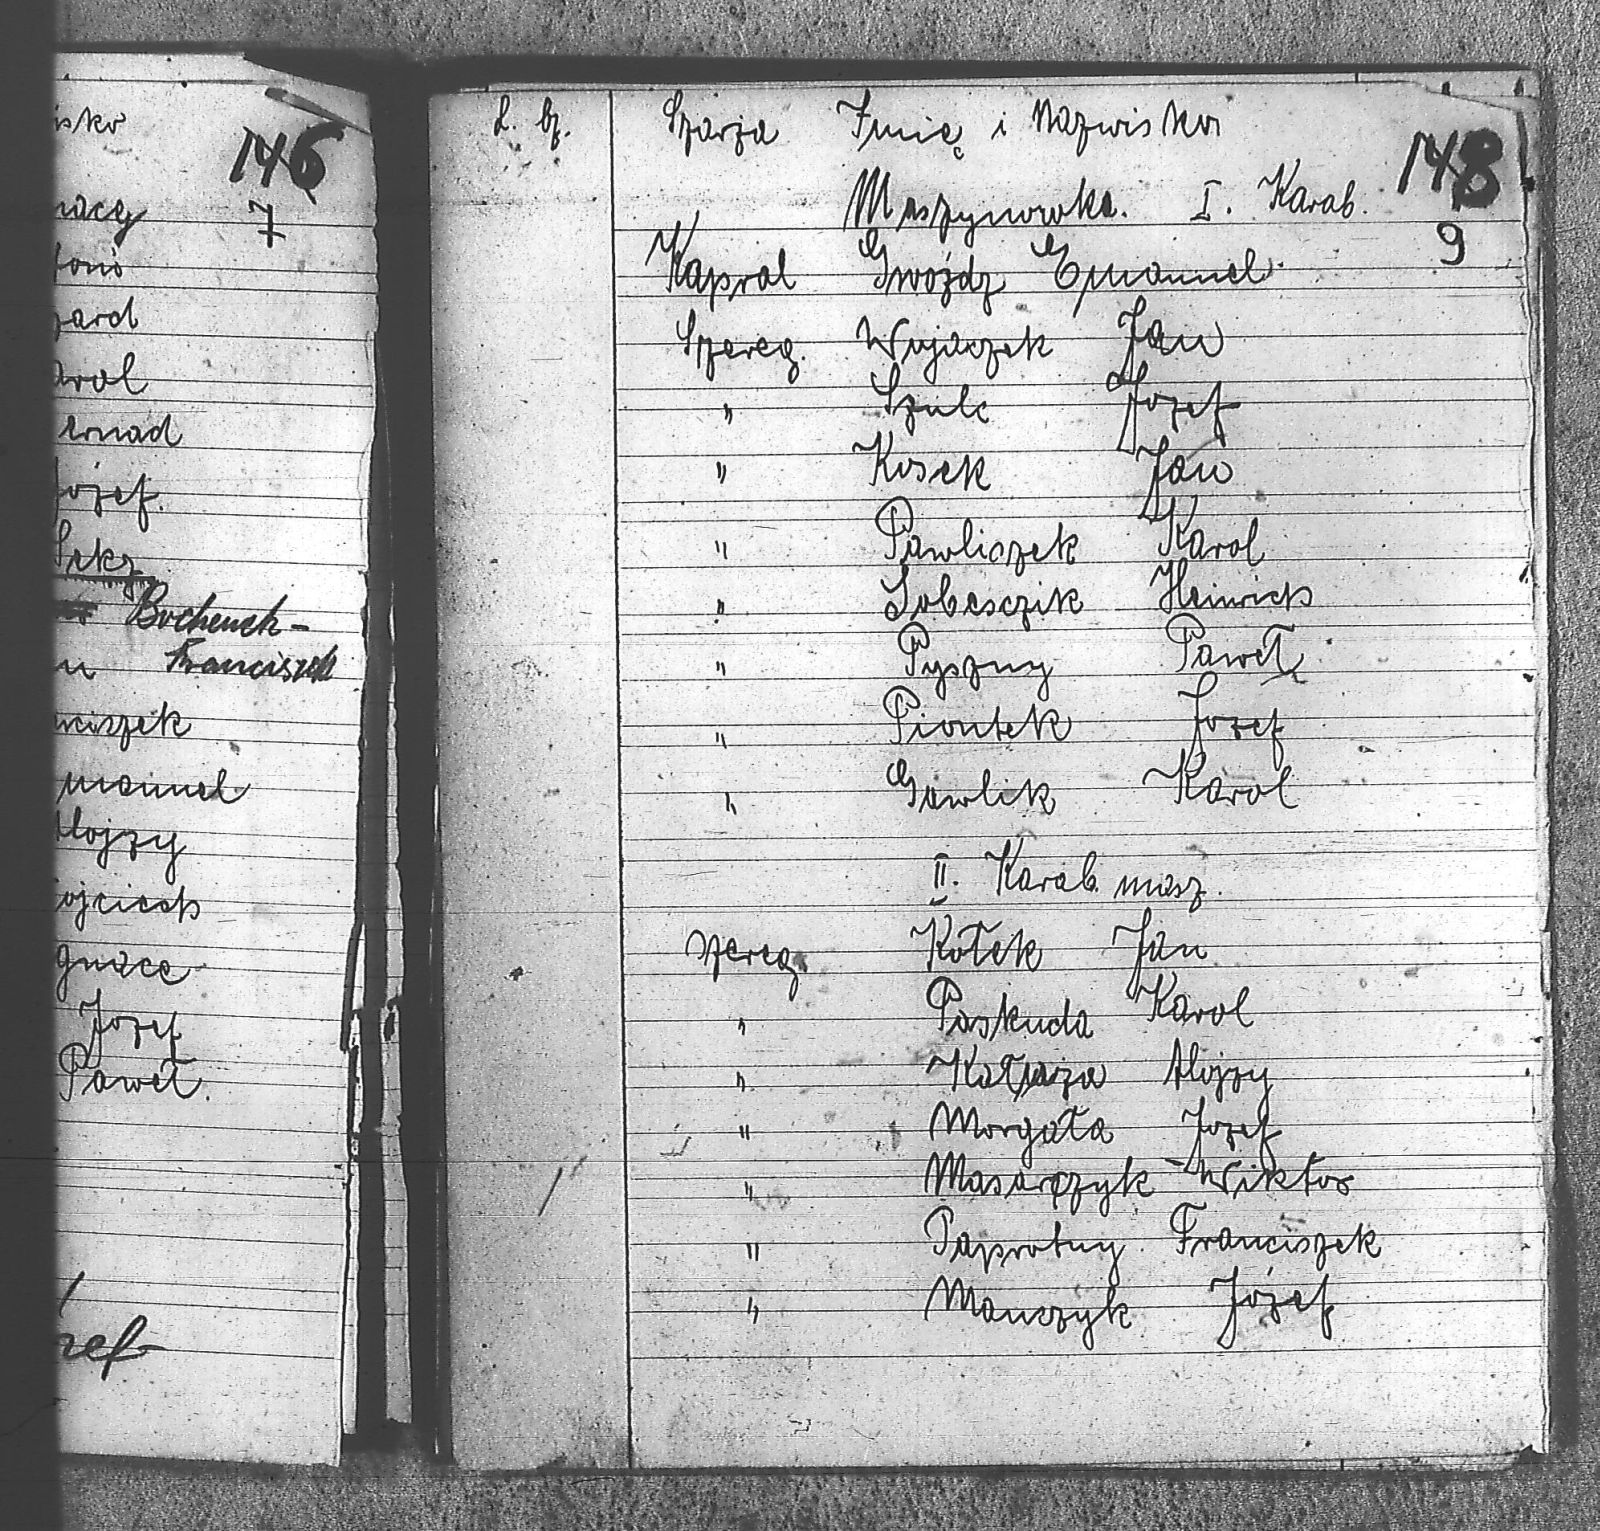 isko
146
nacy 7
toni
zard
arol
ernad
Józef.
Sekz
Bochenek-
u Franciszek
nciszek
manuel
Alojzy
ojciech
gnace
Jozef
Paweł.
zef
L. bz. Szarża Imię i Nazwisko
148
Maszynowka. I. Karab.
9
Kapral Gwoźdz Emanuel.
Szereg. Wujaczek Jan
" Szulc Jozef
" Kosek Jan
" Pawliczek Karol
" Sobesczik Heinrich
" Pyszny Paweł
" Piontek Jozef
" Gawlik Karol
II. Karab. masz.
szereg. Kołek Jan
" Paskuda Karol
" Alojzy
" Morgała Jozef
" Masarczyk Wiktor
" Paprotny Franciszek
" Manczyk Józef